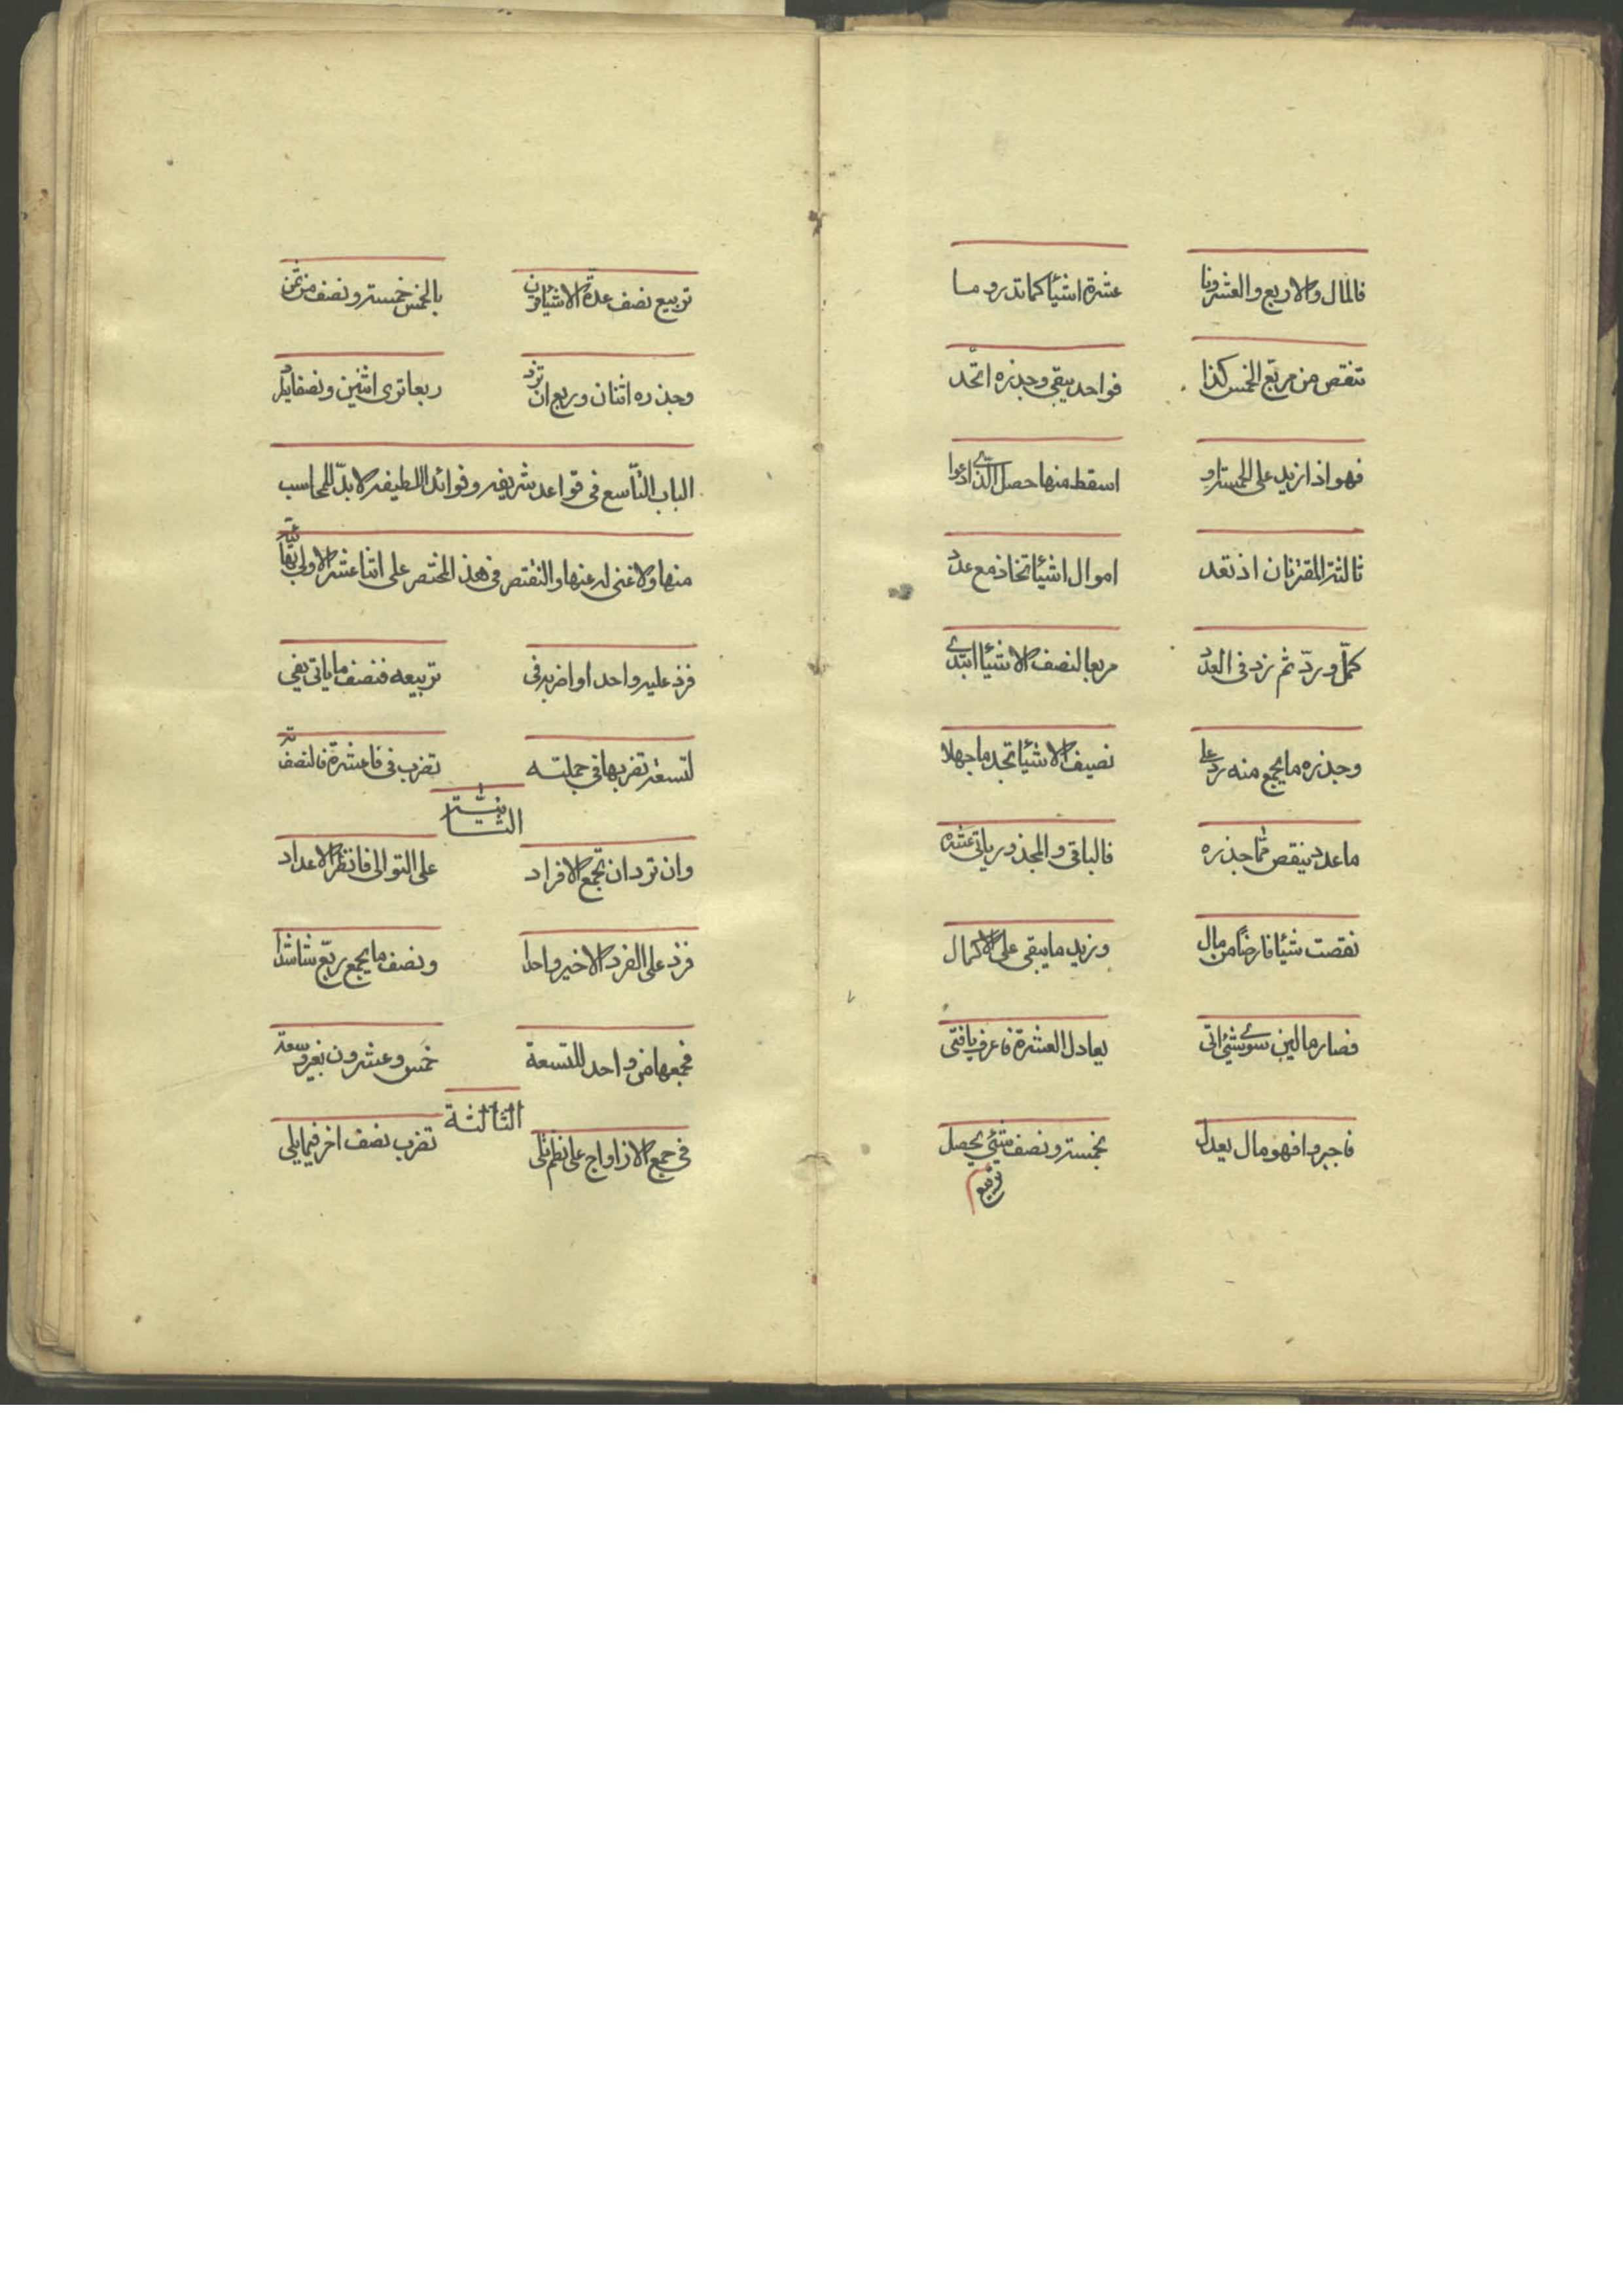 فالمال والاربع والعشرونا عشرة اشيا كما تدرو ما
تنقص من مربع الخمس كذا فواحد يبقى وجذره اتحد
فهو اذا زيد على الخمسة او اسقط منها حصل الذي ادعوا
ثالثة المقترنات اذ تعد اموال اشياتخاذ مع عدد
كمل ورد ثم زد في العدد مربعا لنصف الاشيا ابتدى
وجذره ما يجمع منه زد على نصيف الاشيا تجد ما جهلا
ما عدد ينقص مما جذره فالباقى والمجذور ياتى عشره
نقصت شيئا فارضا من مال وزيد ما يبقى على الاكمال
فصار مالين سوى شئ اتى يعادل العشرة فاعرف يافتى
فاجبر وا فهو مال يعدل بخمسة ونصف شئ يحصل
تربيع
تربيع نصف عدة الاشيا بالخمس خمسة ونصف من ثمن
وجذره اثنان وربع ان تزد ربعا ترى اثنين ونصفا
الباب التاسع فى قواعد شريفه وفوائد اللطيفه لابد للمحاسب
منها ولاغنى له عنها والنقتص فى هذ المختصر على اثنا عشر الاولى
فزد عليه واحدا واضربه فى تربيعه فنصف ما ياتى يفي
لتسعة تضربها في جملته تضرب فى فا عشرة فالنصف
الثانية
وان ترد ان تجمع الافراد على التوالى فانظر الاعداد
فزد على الفرد الاخير واحدا ونصف ما يجمع ربع
فجمعها من واحد للتسعة خمس وعشرون بغير
الثالثة
فى جمع الازاواج على نظم تضرب نصف اخر فيما يلى